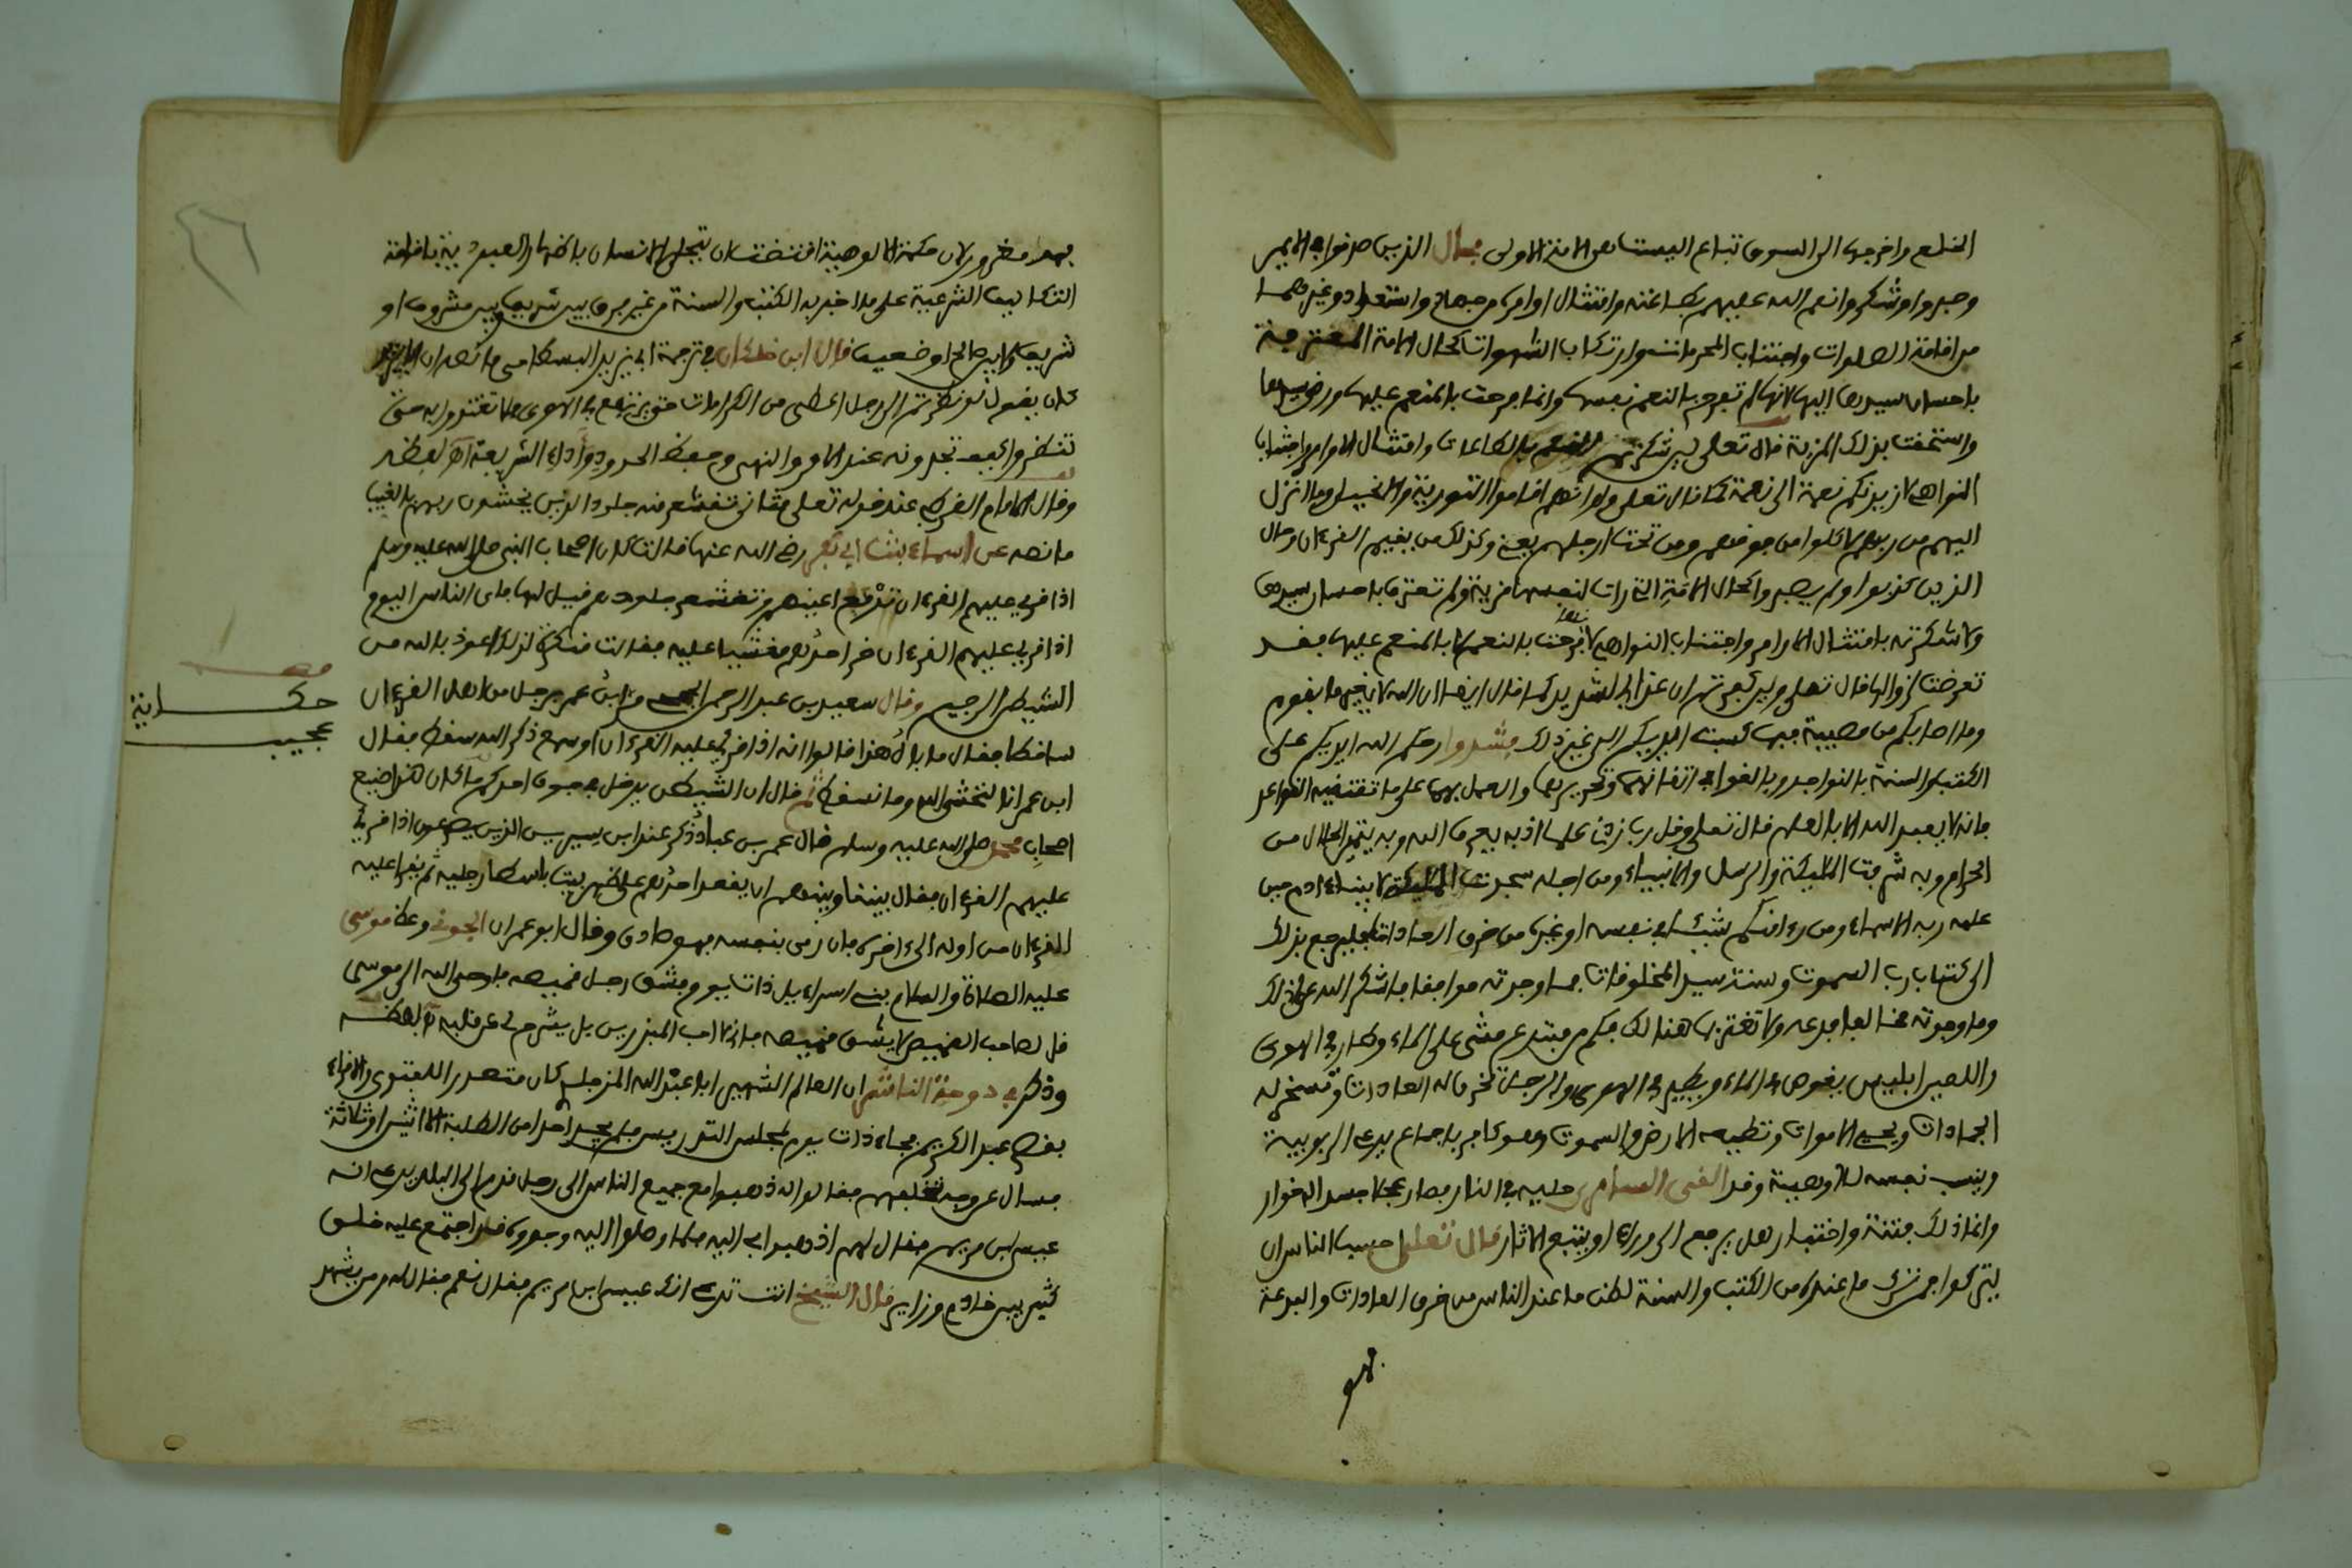 الخلع واخرجها الى السوق تباع اليست هي الامة الاولى مثال الذين صرفوا في الامير
وجدوا وشكروا نعم الله عليهم بطاعته وامتثال اوامره من جهاد واستعداد وغيرهما
من اقامة الصلوات واجتناب المحرمات وارتكاب الشهوات كحال الامة المعترفة
باحسان سيدها اليها لانها لم تفرح بالنعم نفسها وانما فرحت بالمنعم عليها ورضى سيدها
واستحقت بذلك المزية قال تعلى لين شكرتم بالطاعات وامتثال الاوامر واجتناب
النواهي لازيدنكم نعمة الى نعمة كما قال تعلى ولو انهم اقاموا التورية والانجيل وما انزل
اليهم من ربهم لاكلوا من فوقهم ومن تحت ارجلهم يعني وكذلك من يقيم القرءان وحال
الذين كفروا ولم يصبروا كحال الامة التي رات لنفسها مزية ولم تعترف باحسان سيدها
ولا شكرته بامتثال الاوامر واجتناب النواهي لانها فرحت بالنعم لا بالمنعم عليها فقد
تعرضت لزوالها قال تعلى ولين كفرتم ان عذابي لشديد كما قال ايضا ان الله لا يغير ما بقوم
وما اصابكم من مصيبة فبما كسبت ايديكم الى غير ذلك فشدوا رحمكم الله ايديكم على
الكتب والسنة بالنواجد وبالغوا في اتقانهما وتحريرهما والعمل بهما على ما تقتضيه القواعد
فانه لا يعبد الله الا بالعلم قال تعلى وقل رب زدني علما اذ به يعرف الله وبه يتميز الحلال من
الحرام وبه شرفت المليكة والرسل والانبياء ومن اجله سجدت المليكة لابينا ءادم حين
علمه ربه الاسماء ومن رءا منكم شيئا في نفسه او غيره من خرق العادات فليرجع بذلك
الى كتاب رب السموت وسنة سيد المخلوقات فما وجدته موافقا فاشكر الله على ذلك
وما وجدته مخالفا فدعه ولا تغتر بما هنالك فكم من مبتدع مشى على الماء وطار في الهوى
واللعين ابليس يغوص في الماء ويطير في الهوى والدجال تخرق له العادات وتسخر له
الجمادات ويحيي الاموات وتطيعه الارض والسموت وهو كافر باجماع يدعي الربوبية
وينسب نفسه للالوهية وقد القى السامري حليه في النار فصار عجلا جسدا له خوار
وانما ذلك فتنة واختبار هل يرجع الى وراء او يتبع الاثار قال تعلى احسب الناس ان
يتركوا فمن ترك ما عنده من الكتب والسنة لطلب ما عند الناس من خرق العادات والبدعة
فهو
فهو مغرور لان حكمة الالوهية اقتضت ان يتجلى الانسان باظهار العبودية باقامة
التكاليف الشرعية على ما اخبر به الكتب والسنة من غير فرق بين شريف وبين مشروف او
شريف ولا بين صالح او ضعيف قال ابن خلكان في ترجمة ابي يزيد البسطامي ما نصه ان ابا يزيد
كان يقول لو نظرتم الى رجل اعطي من الكرامات حتى يرتفع في الهوى فلا تغتروا به حتى
تنظروا كيف تجدونه عند الامر والنهي وحفظ الحدود وأداء الشريعة اه لفظه
وقال الامام القرطبي عند قوله تعلى مثاني تقشعر منه جلود الذين يخشون ربهم بالغيب
ما نصه عن اسماء بنت ابي بكر رضي الله عنها قالت كان اصحاب النبي صلى الله عليه وسلم
اذا قرئ عليهم القرءان تدمع اعينهم وتقشعر جلودهم فقيل لها فان الناس اليوم
اذا قرئ عليهم القرءان خر احدهم مغشيا عليه فقالت منكرة لذلك اعوذ بالله من
الشيطن الرجيم وقال سعيد بن عبد الرحمن الجمحي مر ابن عمر برجل من اهل القرءان
ساقطا فقال ما بال هذا قالوا انه اذا قرئ عليه القرءان او سمع ذكر الله سقط فقال
ابن عمر انا لنخشى الله وما نسقط ثم قال ان الشيطن يدخل في جوف احدكم ما كان هذا صنيع
اصحاب محمد صلى الله عليه وسلم قال عمر بن ذكر عند ابن سيرين الذين يصرعون اذا قرئ
عليهم القرءان فقال بيننا وبينهم ان يقعد احدهم على ظهر بيت باسطا رجليه ثم يقرا عليه
القرءان من اوله الى ءاخره فان رمى بنفسه فهو صادق وقال ابو عمران الجوني وعظ موسى
عليه الصلاة والسلام بني اسراءيل ذات يوم فشق رجل قميصه فاوحى الله الى موسى
قل لصاحب القميص لا يشق قميصه فاني لا احب المبذرين بل يشرح لي عن قلبه اه لفظه
وذكر في دوحة الناشر ان العالم الشهير ابا عبد الله كان متصدرا للفتوى والاقراء
بقصر عبد الكريم فجاء ذات يوم لمجلس التدريس فلم يجد احدا من الطلبة الا اثنين او ثلاثة
فسال عن وجه تخلفهم فقالوا له ذهبوا مع جميع الناس الى رجل قدم الى البلد يدعي انه
عيسى ابن مريم فقال لهم اذهبوا بي اليه فلما وصلوا اليه وجدوه قد اجتمع عليه خلق
كثير بين خادم وزاير قال الشيخ انت تدعي انك عيسى ابن مريم فقال نعم فقال له ومن يشهد
قف
حكاية
عجيب